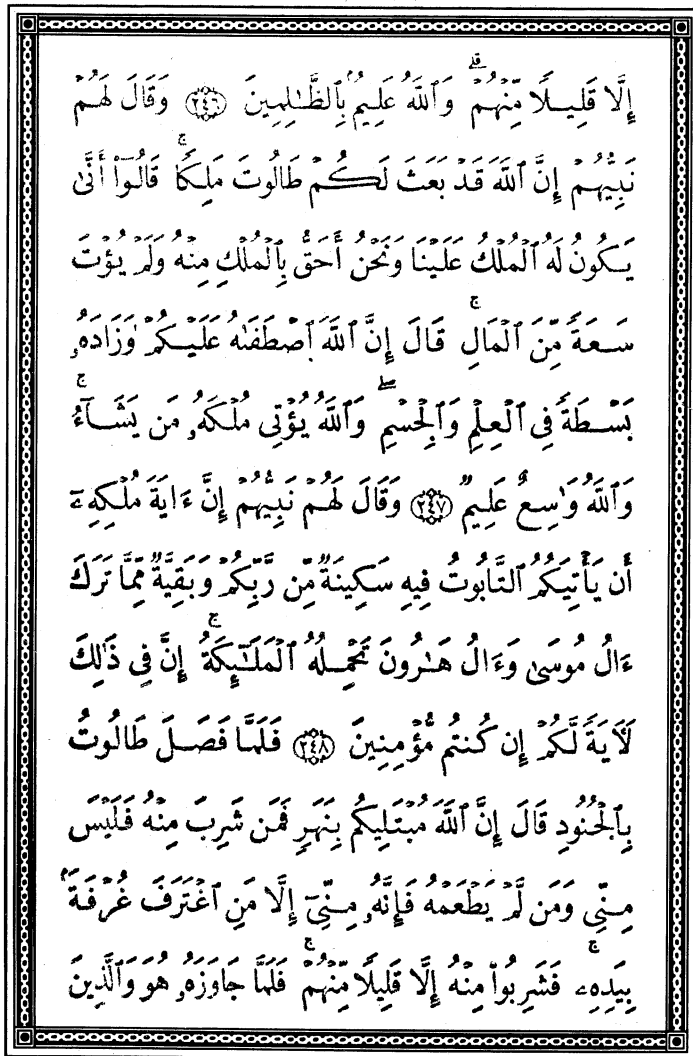 إِلَّا قَلِيلًا مِّنْهُمْ ۗ وَٱللَّهُ عَلِيمٌۢ بِٱلظَّٰلِمِينَ ﴿٢٤٦﴾ وَقَالَ لَهُمْ
نَبِيُّهُمْ إِنَّ ٱللَّهَ قَدْ بَعَثَ لَكُمْ طَالُوتَ مَلِكًا ۚ قَالُوٓا۟ أَنَّىٰ
يَكُونُ لَهُ ٱلْمُلْكُ عَلَيْنَا وَنَحْنُ أَحَقُّ بِٱلْمُلْكِ مِنْهُ وَلَمْ يُؤْتَ
سَعَةً مِّنَ ٱلْمَالِ ۚ قَالَ إِنَّ ٱللَّهَ ٱصْطَفَىٰهُ عَلَيْكُمْ وَزَادَهُۥ
بَسْطَةً فِى ٱلْعِلْمِ وَٱلْجِسْمِ ۖ وَٱللَّهُ يُؤْتِى مُلْكَهُۥ مَن يَشَآءُ ۚ
وَٱللَّهُ وَٰسِعٌ عَلِيمٌ ﴿٢٤٧﴾ وَقَالَ لَهُمْ نَبِيُّهُمْ إِنَّ ءَايَةَ مُلْكِهِۦٓ
أَن يَأْتِيَكُمُ ٱلتَّابُوتُ فِيهِ سَكِينَةٌ مِّن رَّبِّكُمْ وَبَقِيَّةٌ مِّمَّا تَرَكَ
ءَالُ مُوسَىٰ وَءَالُ هَٰرُونَ تَحْمِلُهُ ٱلْمَلَٰٓئِكَةُ ۚ إِنَّ فِى ذَٰلِكَ
لَءَايَةً لَّكُمْ إِن كُنتُم مُّؤْمِنِينَ ﴿٢٤٨﴾ فَلَمَّا فَصَلَ طَالُوتُ
بِٱلْجُنُودِ قَالَ إِنَّ ٱللَّهَ مُبْتَلِيكُم بِنَهَرٍ فَمَن شَرِبَ مِنْهُ فَلَيْسَ
مِنِّى وَمَن لَّمْ يَطْعَمْهُ فَإِنَّهُۥ مِنِّىٓ إِلَّا مَنِ ٱغْتَرَفَ غُرْفَةًۢ
بِيَدِهِۦ ۚ فَشَرِبُوا۟ مِنْهُ إِلَّا قَلِيلًا مِّنْهُمْ ۚ فَلَمَّا جَاوَزَهُۥ هُوَ وَٱلَّذِينَ